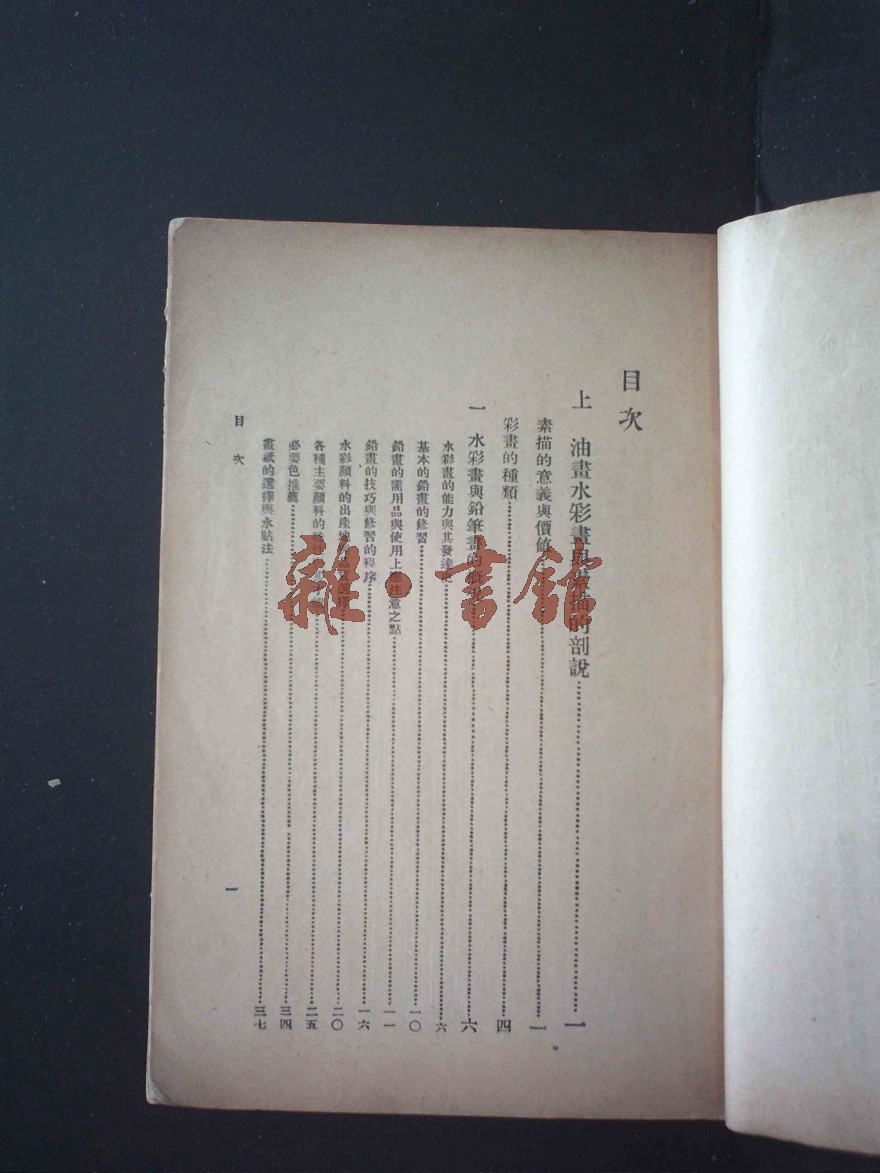 目次
上 油畫水彩畫與素描的剖說 一
素描的意義與價值 一
彩畫的種類 四
一 水彩畫與鉛筆畫的 六
水彩畫的能力與其發達史 六
基本的鉛畫的修習 一〇
鉛畫的需用品與使用上應注意之點 一一
鉛畫的技巧與修習的程序 一六
水彩顏料的出產地 選擇 二〇
各種主要顏料的 二五
必要色推薦 三四
畫紙的選擇與水貼法 三七
目次
一
雜·書館